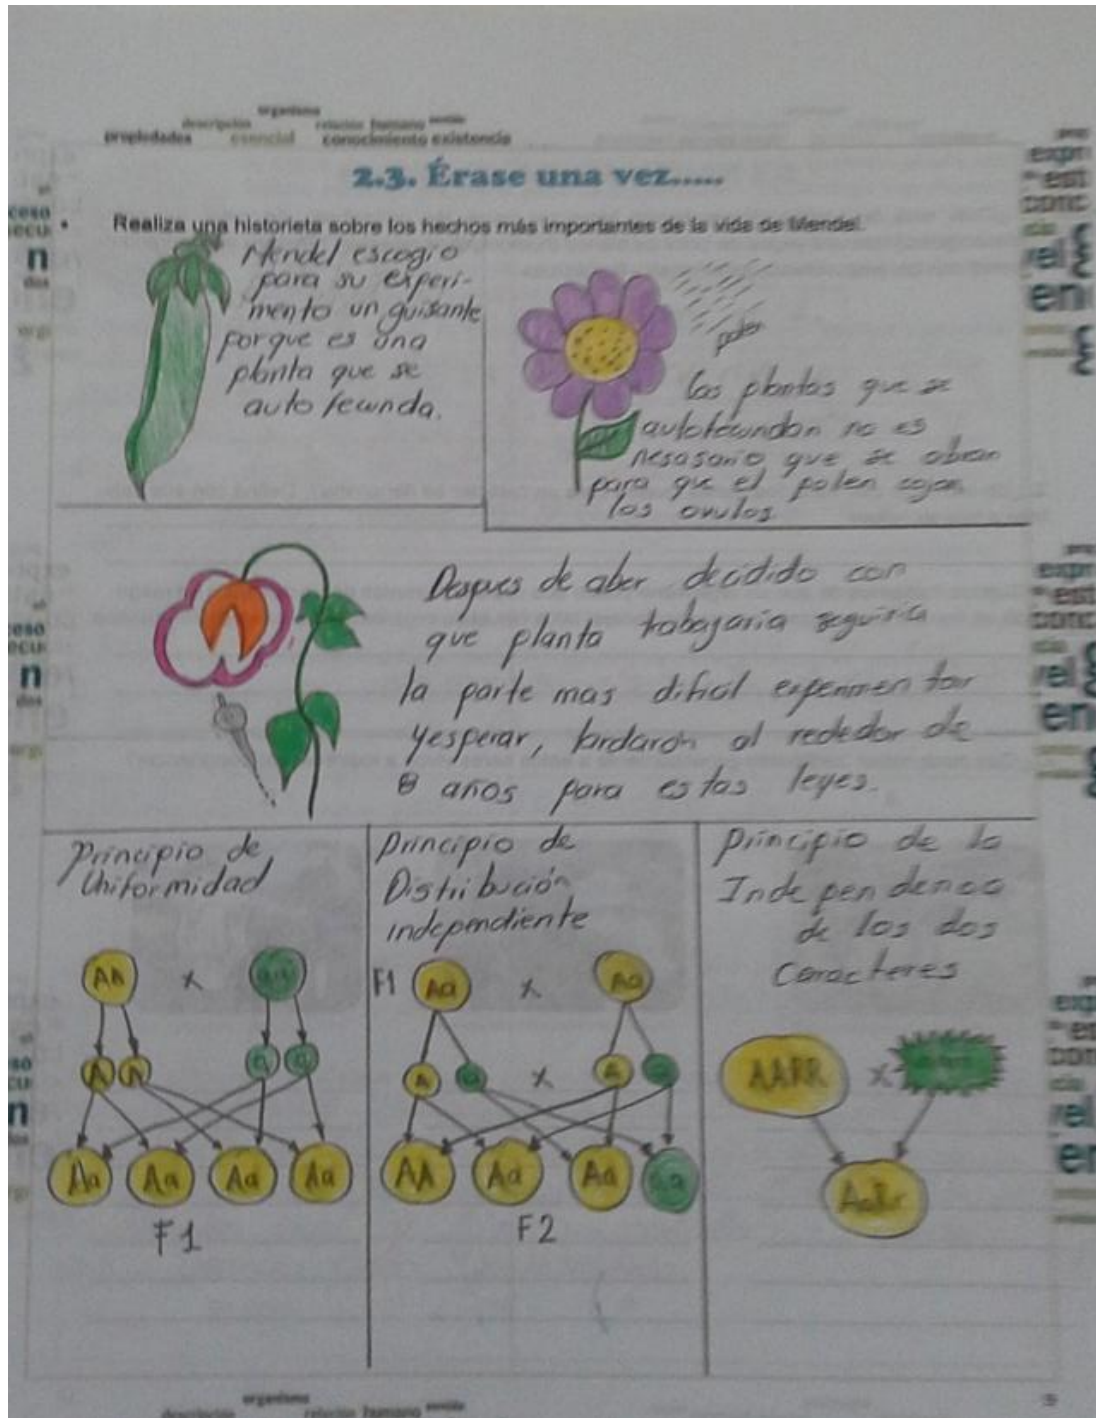 organismo
descripción relación humano sentido
propiedades esencial conocimiento existencia
2.3. Érase una vez.....
• Realiza una historieta sobre los hechos más importantes de la vida de Mendel.
Mendel escogio
para su experi-
mento un guisante
porque es una
planta que se
auto fecunda.
polen
las plantas que se
autofecundan no es
nesasario que se abran
para que el polen cojan
los ovulos
Despues de aber decidido con
que planta trabajaria seguiria
la parte mas dificil experimentar
yesperar, tardarón al rededor de
8 años para estas leyes.
Principio de
Uniformidad
AA x aa
A A a a
Aa Aa Aa Aa
F1
Principio de
Distribución
independiente
F1 Aa x Aa
A a x A a
AA Aa Aa aa
F2
Principio de la
Independencia
de los dos
Caracteres
AARR x
AaRr
organismo
descripción relación humano sentido